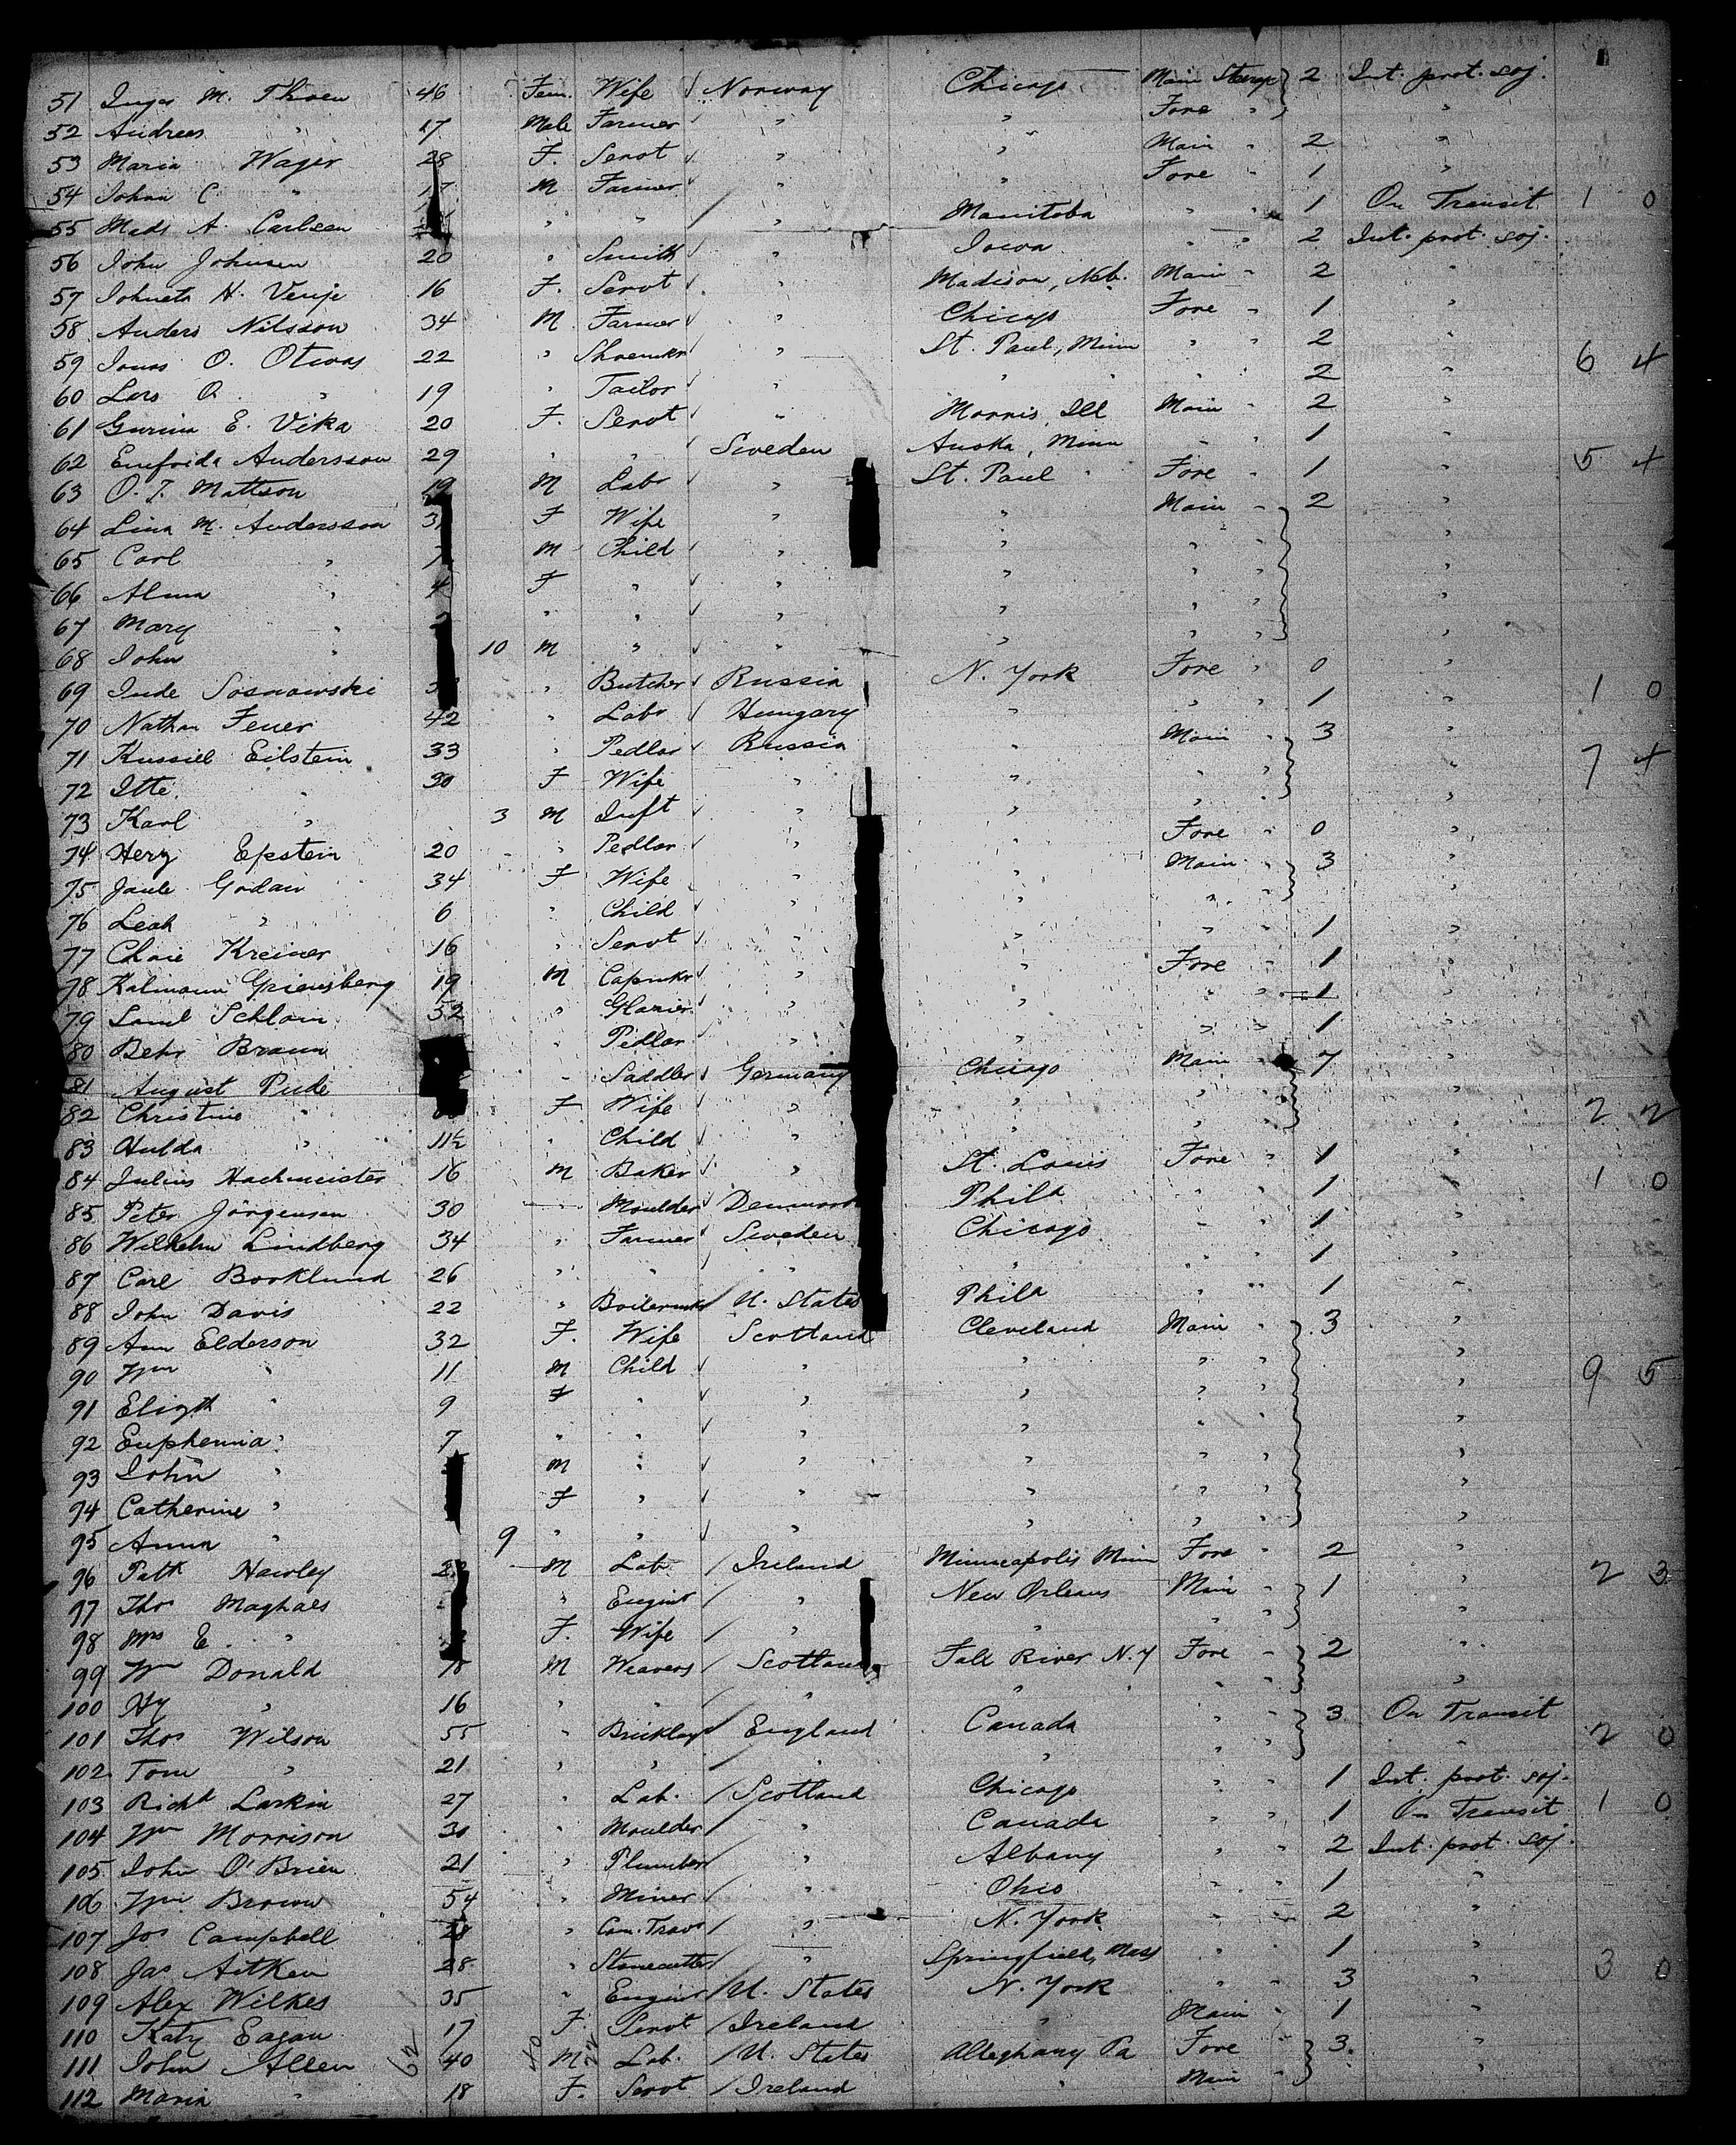 51 Inga M. Thoen 46 Fem. Wife Norway Chicago Main Sterge 2 Int. prot. soj.
52 Andreas " 17 Male Farmer " " Fore " "
53 Maria Wager 28 F. Servt " " Main " 2 "
54 Johan C. " M Farmer " " Fore " 1 "
55 Mads A. Carlsen " " " Manitoba " " 1 On Transit 1 0
56 John Johnsen 20 " Smith " Iowa " " 2 Int. prot. soj.
57 Johneta H. 16 F. Servt " Madison, Neb. Main " 2 "
58 Anders Nilsson 34 M Farmer " Chicago Fore " 1 "
59 Jonas O. 22 " Shoemkr " St. Paul, Minn " " 2 "
60 Lars O. " 19 " Tailor " " " " 2 " 6 4
61 E. Vika 20 F. Servt " Morris, Ill Main " 2 "
62 Andersson 29 " " Sweden Anoka, Minn " " 1 "
63 O. T. Mattson 19 M Labr " St. Paul " Fore " 1 " 5 4
64 Lina M. Andersson F Wife " " Main " 2 "
65 Carl " M Child " " " " "
66 Alma " 4 F " " " " " "
67 Mary " " " " " " " "
68 John " 10 M " " " " " "
69 Jude Sosnowski " Butcher Russia N. York Fore " 0 "
70 Nathan Feuer 42 " Labr Hungary " " " 1 " 1 0
71 Kussiel Eilstein 33 " Pedlar Russia " Main " 3 "
72 Itte " 30 F Wife " " " " " 7 4
73 Karl " 3 M Inft " " " " "
74 Herz Epstein 20 " Pedlar " " Fore " 0 "
75 Godaw 34 F Wife " " Main " 3 "
76 Leah " 6 " Child " " " " "
77 Chaie Kreiner 16 " Servt " " " " 1 "
78 Kalmann 19 M Capmkr " " Fore " 1 "
79 Saml Schlam 52 " Glazier " " " " 1 "
80 Behr Braun " Pedlar " " " " 1 "
81 August Pude " Saddler Germany Chicago Main " 7 "
82 Christine " F Wife " " " " "
83 Hulda " 11½ " Child " " " " " 2 2
84 Julius Hachmeister 16 M Baker " St. Louis Fore " 1 "
85 Peter Jörgensen 30 " Moulder Denmark Phila " " 1 " 1 0
86 Wilhelm Lindberg 34 " Farmer Sweden Chicago " " 1 "
87 Carl Borklund 26 " " " " " " 1 "
88 John Davis 22 " Boilermkr U. States Phila " " 1 "
89 Ann Elderson 32 F. Wife Scotland Cleveland Main " 3 "
90 Wm " 11 M Child " " " " "
91 Elizth " 9 F " " " " " " 9 5
92 Euphemia " 7 " " " " " " "
93 John " M " " " " " "
94 Catherine " F " " " " " "
95 Anna " 9 " " " " " " "
96 Patk Hawley M Lab. Ireland Minneapolis Minn Fore " 2 "
97 Thos " Enginr " New Orleans Main " 1 " 2 3
98 Mrs E. " F. Wife " " " " "
99 Wm Donald 18 M Weavers Scotland Fall River N.Y Fore " 2 "
100 Hy " 16 " " " " " " "
101 Thos Wilson 55 " Bricklayr England Canada " " 3 On Transit
102 Tom " 21 " " " " " " " 2 0
103 Richd Larkin 27 " Lab. Scotland Chicago " " 1 Int. prot. soj.
104 Wm Morrison 30 " Moulder " Canada " " 1 On Transit 1 0
105 John O'Brien 21 " Plumber " Albany " " 2 Int. prot. soj.
106 Wm Brown 54 " Miner " Ohio " " 1 "
107 Jos Campbell 28 " Com. Travr " N. York " " 2 "
108 Jas Aitken 28 " Stonecutter " Springfield, Mass " " 1 "
109 Alex Wilkes 35 " Enginr U. States N. York " " 3 " 3 0
110 Katy Eagan 17 F. Servt Ireland " Main " 1 "
111 John Allen 62 40 40 M 22 Lab. U. States Alleghany Pa Fore 3. "
112 Maria " 18 F. Servt Ireland " Main " "